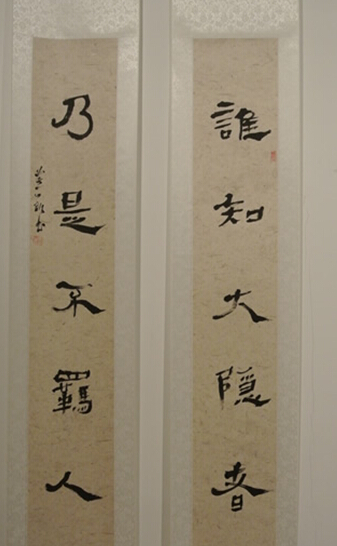 誰知大隱者
乃是不羈人